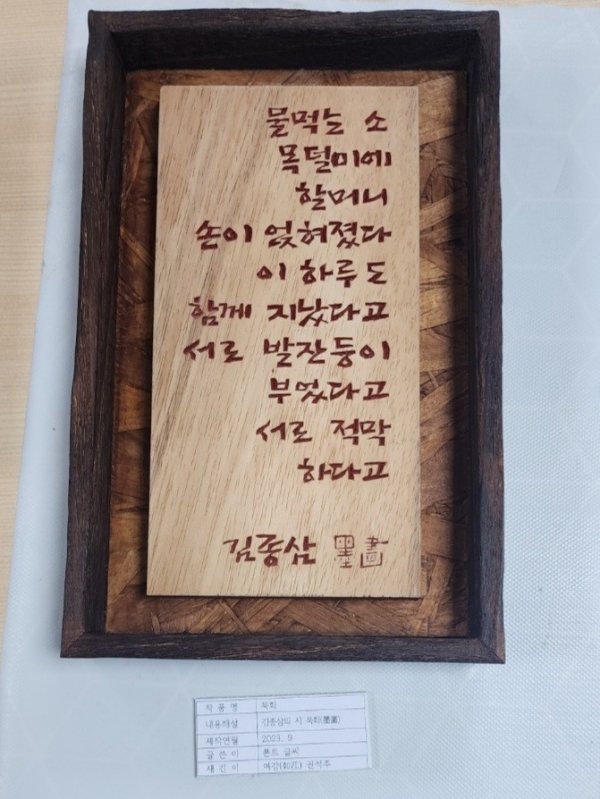 물먹는 소
목덜미에
할머니
손이 얹혀졌다
이 하루도
함께 지났다고
서로 발잔등이
부었다고
서로 적막
하다고
김종삼 墨畵
작 품 명 묵화
내용해설 김종삼의 시 묵화(墨畵)
제작연월 2023. 9
글 쓴 이 폰트 글씨
새 긴 이